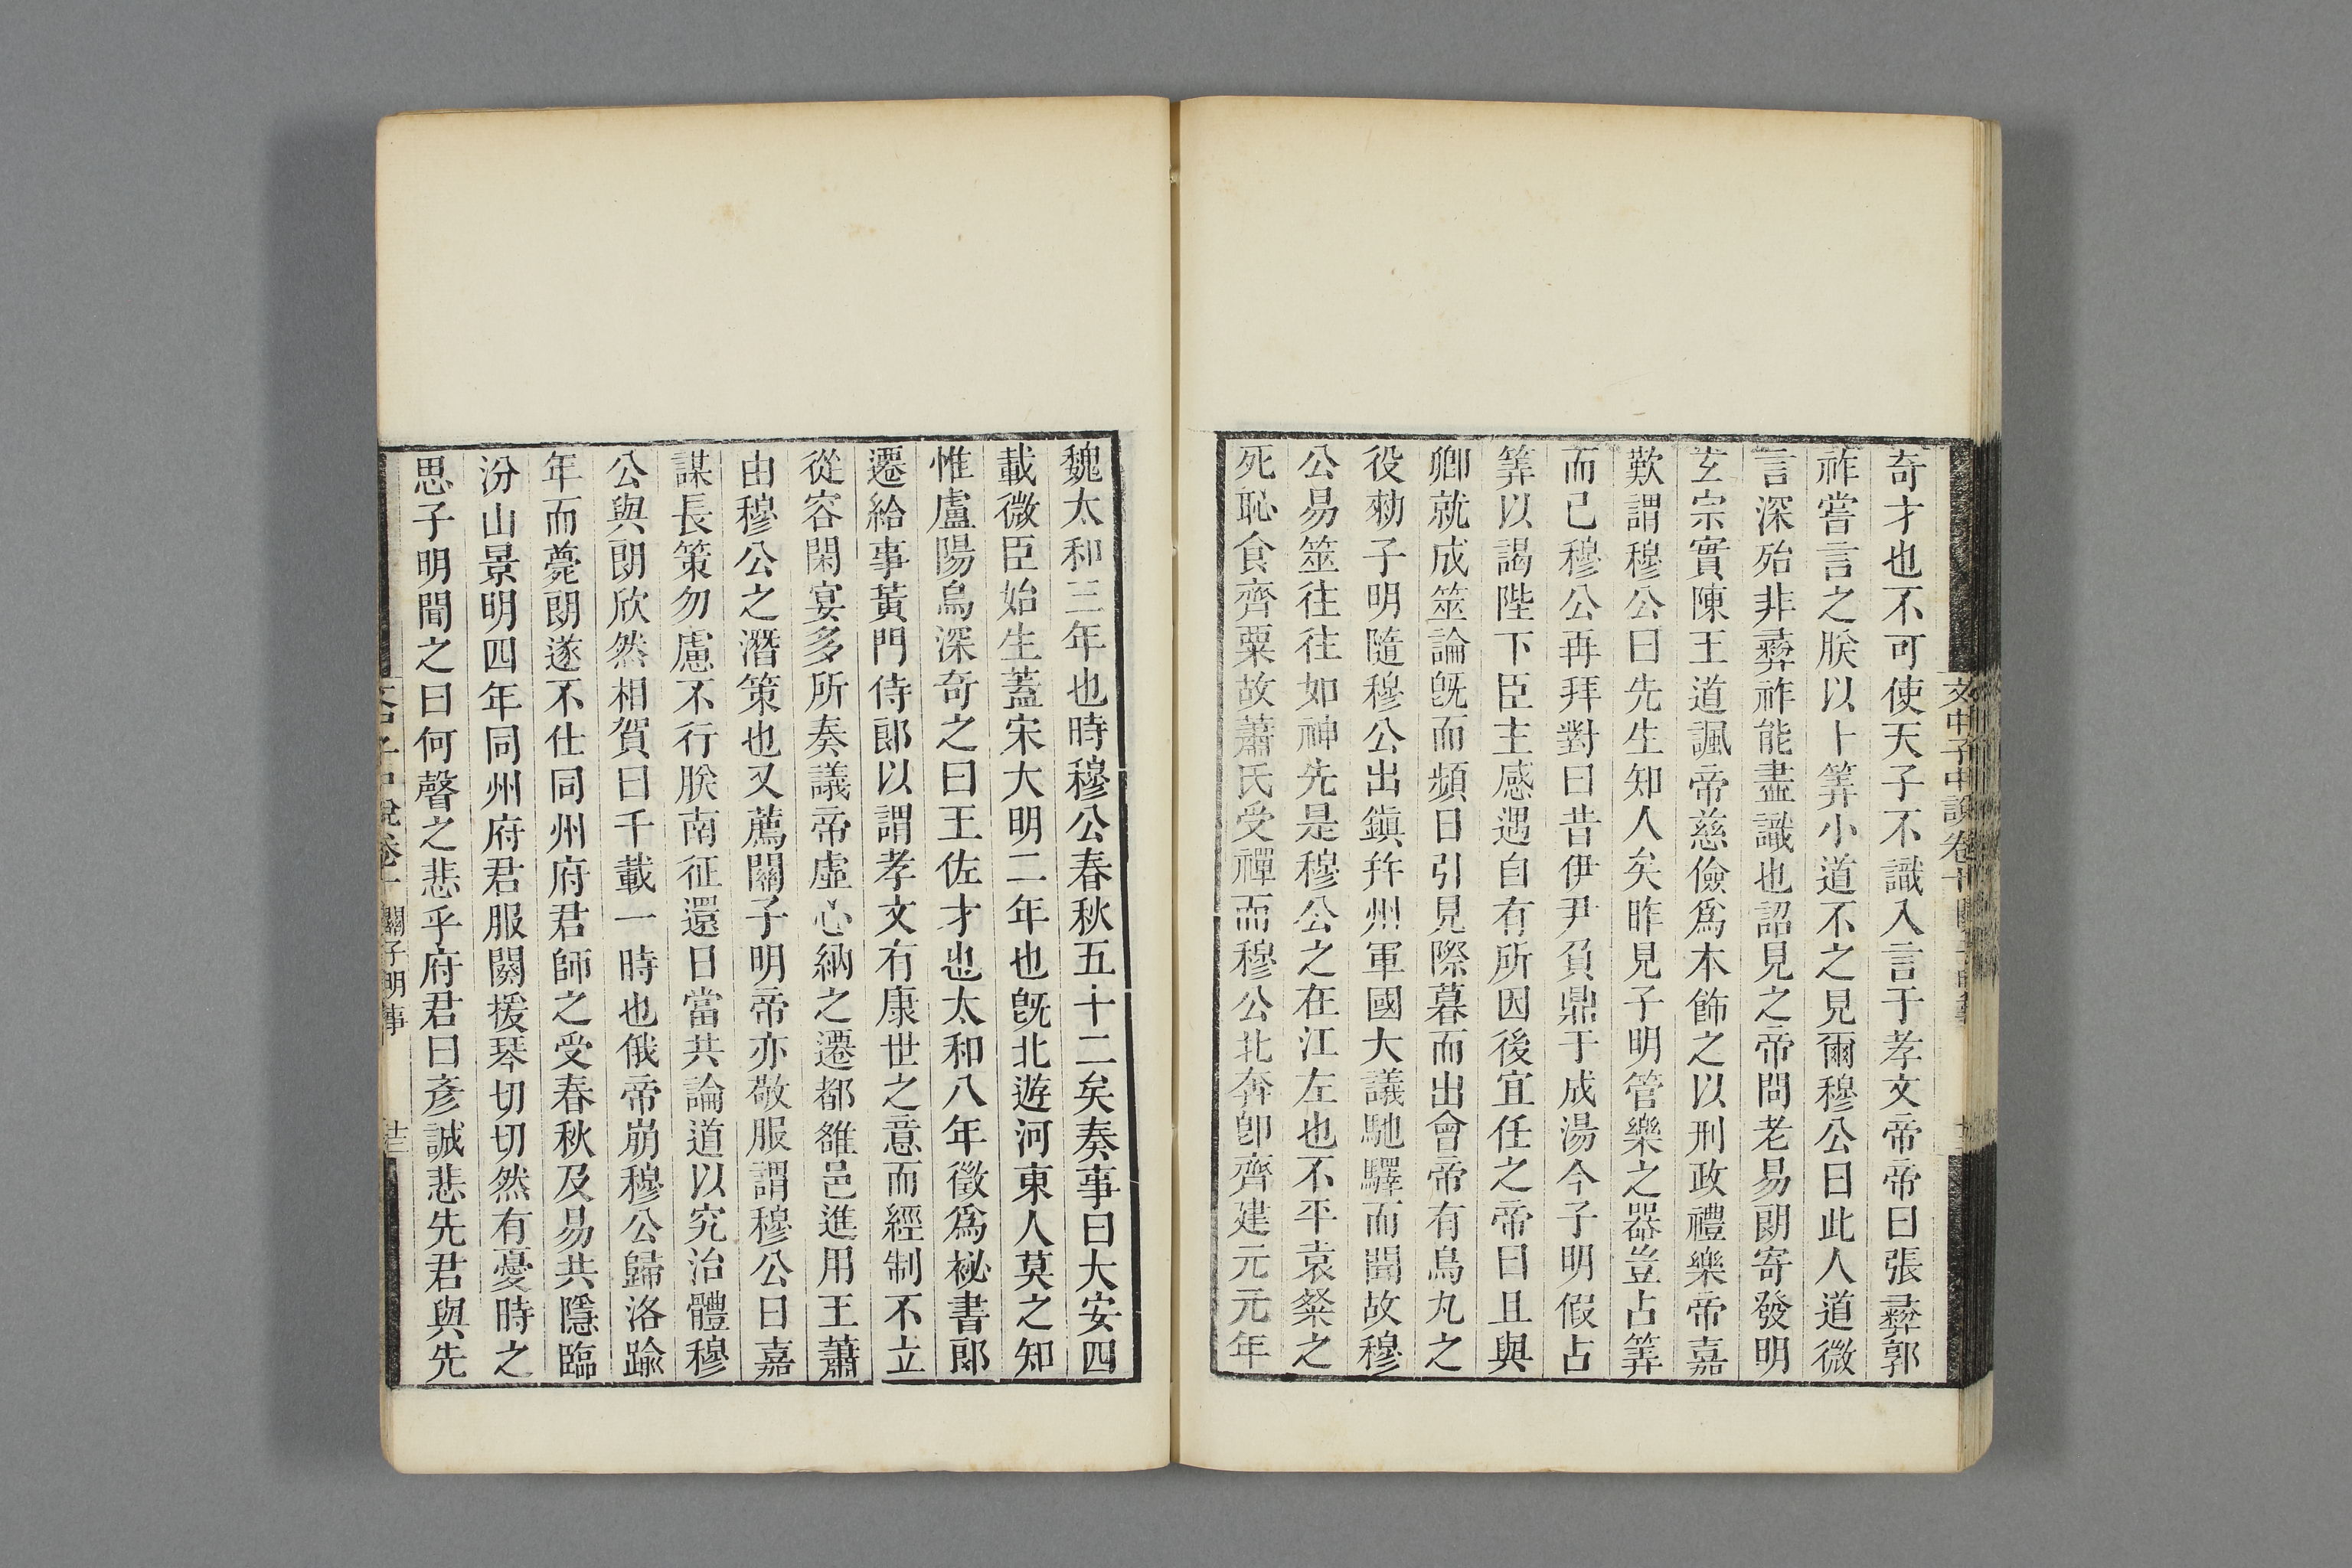 文中子中說卷十
奇才也不可使天子不識入言于孝文帝帝曰張彝郭
祚嘗言之朕以卜筭小道不之見爾穆公曰此人道微
言深殆非彝祚能盡識也詔見之帝問老易朗寄發明
玄宗實陳王道諷帝慈儉爲本飾之以刑政禮樂帝嘉
歎謂穆公曰先生知人矣昨見子明管樂之器豈占筭
而已穆公再拜對曰昔伊尹負鼎于成湯今子明假占
筭以謁陛下臣主感遇自有所因後宜任之帝曰且與
卿就成筮論旣而頻日引見際暮而出會帝有烏丸之
役勑子明隨穆公出鎭并州軍國大議馳驛而聞故穆
公易筮往往如神先是穆公之在江左也不平袁粲之
死恥食齊粟故蕭氏受禪而穆公北奔卽齊建元元年
魏太和三年也時穆公春秋五十二矣奏事曰大安四
載微臣始生蓋宋大明二年也旣北遊河東人莫之知
惟盧陽烏深奇之曰王佐才也太和八年徵爲祕書郎
遷給事黃門侍郎以謂孝文有康世之意而經制不立
從容閑宴多所奏議帝虛心納之遷都雒邑進用王蕭
由穆公之潛策也又薦關子明帝亦敬服謂穆公曰嘉
謀長策勿慮不行朕南征還日當共論道以究治體穆
公與朗欣然相賀曰千載一時也俄帝崩穆公歸洛踰
年而薨朗遂不仕同州府君師之受春秋及易共隱臨
汾山景明四年同州府君服闋援琴切切然有憂時之
思子明聞之曰何聲之悲乎府君曰彥誠悲先君與先
關子明事